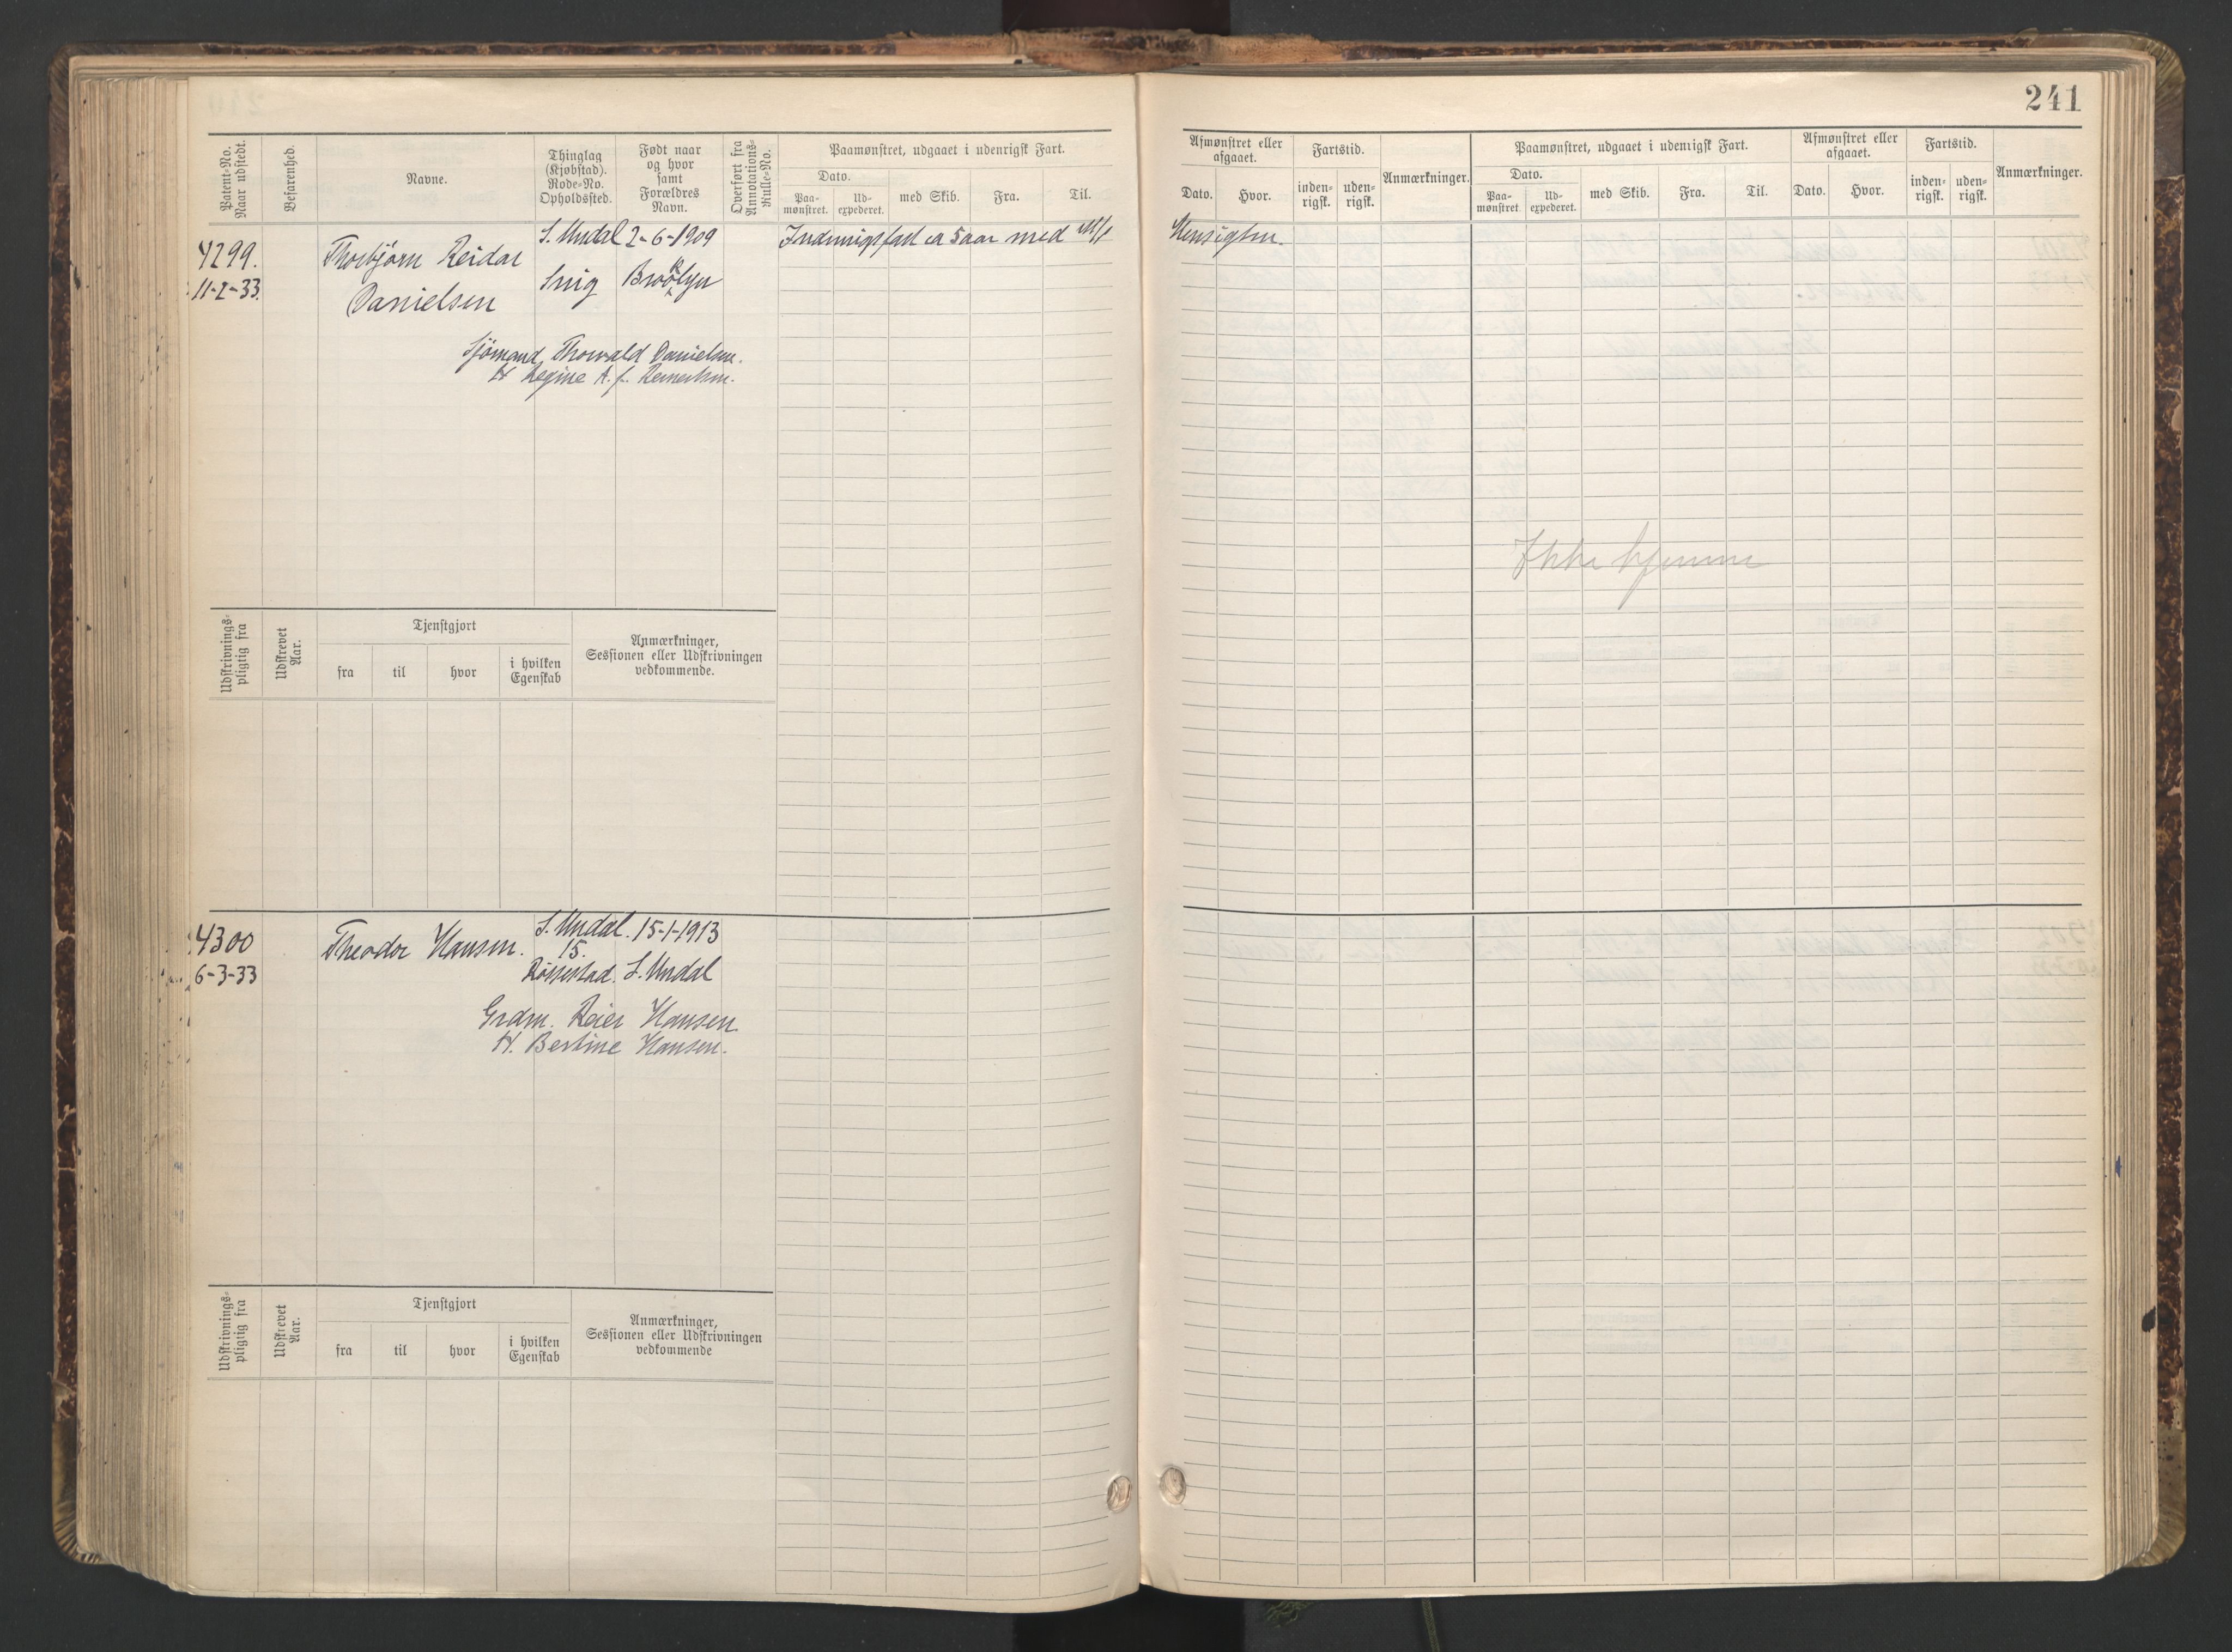 241
Patent-No.
Naar udstedt.
Befarenhed.
Navne.
Thinglag
(Kjøbstad).
Rode-No.
Opholdssted.
Født naar
og hvor
samt
Forældres
Navn.
Overført fra
Annotations-
Rulle-No.
Paamønstret, udgaaet i udenrigsk Fart.
Dato.
Paa-
mønstret.
Ud-
expederet.
med Skib.
Fra.
Til.
Afmønstret eller
afgaaet.
Dato.
Hvor.
Fartstid.
inden-
rigsk.
uden-
rigsk.
Anmærkninger.
Paamønstret, udgaaet i udenrigsk Fart.
Dato.
Paa-
mønstret
Ud-
expederet.
med Skib.
Fra.
Til.
Afmønstret eller
afgaaet.
Dato.
Hvor.
Fartstid.
inden-
rigsk.
uden-
rigsk.
Anmærkninger.
4299.
11-2-33.
Thorbjørn Reidar
Danielsen
S. Undal
Snig
2-6-1909
Brooklyn
Sjømand Thorvald Danielsen.
H Regine A. f. Reinertsen.
Indenrigsfart ca 5 aar med M/s
Hensigten.
Ikke hjemme
Udskrivnings-
pligtig fra
Udskrevet
Aar.
Tjenstgjort
fra
til
hvor
i hvilken
Egenskab
Anmærkninger,
Sessionen eller Udskrivningen
vedkommende.
4300
6-3-33
Theodor Hansen.
S. Undal.
15.
Røssestad.
15-1-1913
S. Undal
Grdm. Reier Hansen.
H. Bertine Hansen.
Udskrivnings-
pligtig fra
Udskrevet
Aar.
Tjenstgjort
fra
til
hvor
i hvilken
Egenskab
Anmærkninger,
Sessionen eller Udskrivningen
vedkommende